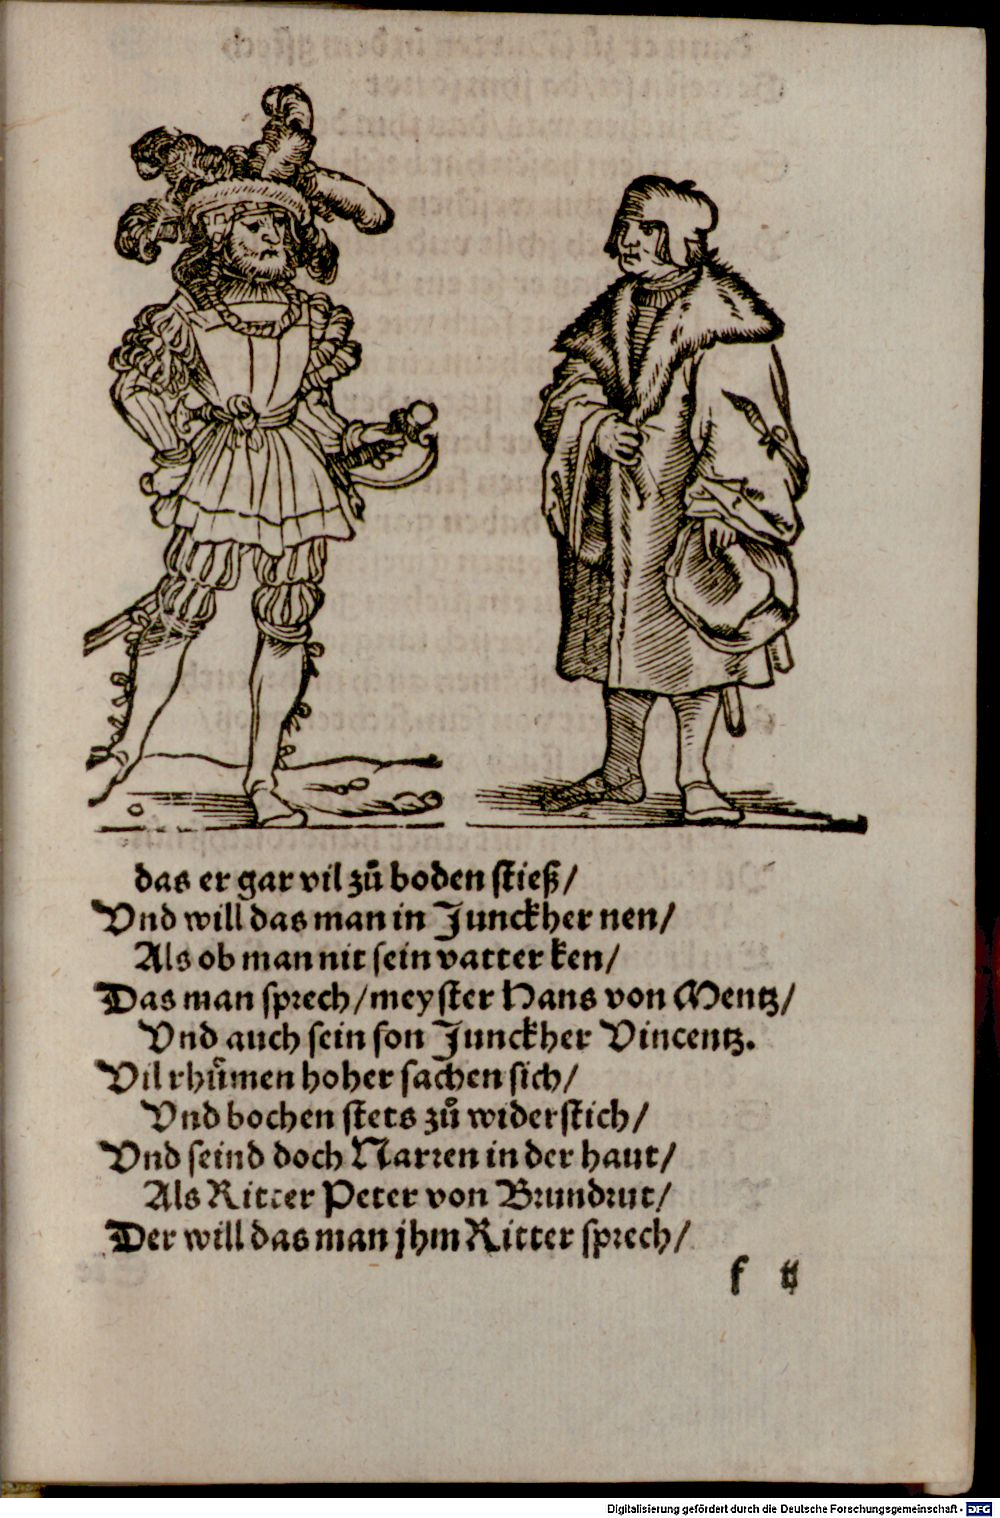 das er gar vil zů boden stieß/
Vnd will das man in Junckher nen/
Als ob man nit sein vatter ken/
Das man sprech/meyster Hans von Mentz/
Vnd auch sein son Junckher Vincentz.
Vil rhůmen hoher sachen sich/
Vnd bochen stets zů widerstich/
Vnd seind doch Narren in der haut/
Als Ritter Peter von Brundrut/
Der will das man jhm Ritter sprech/
f ij
Digitalisierung gefördert durch die Deutsche Forschungsgemeinschaft - DFG